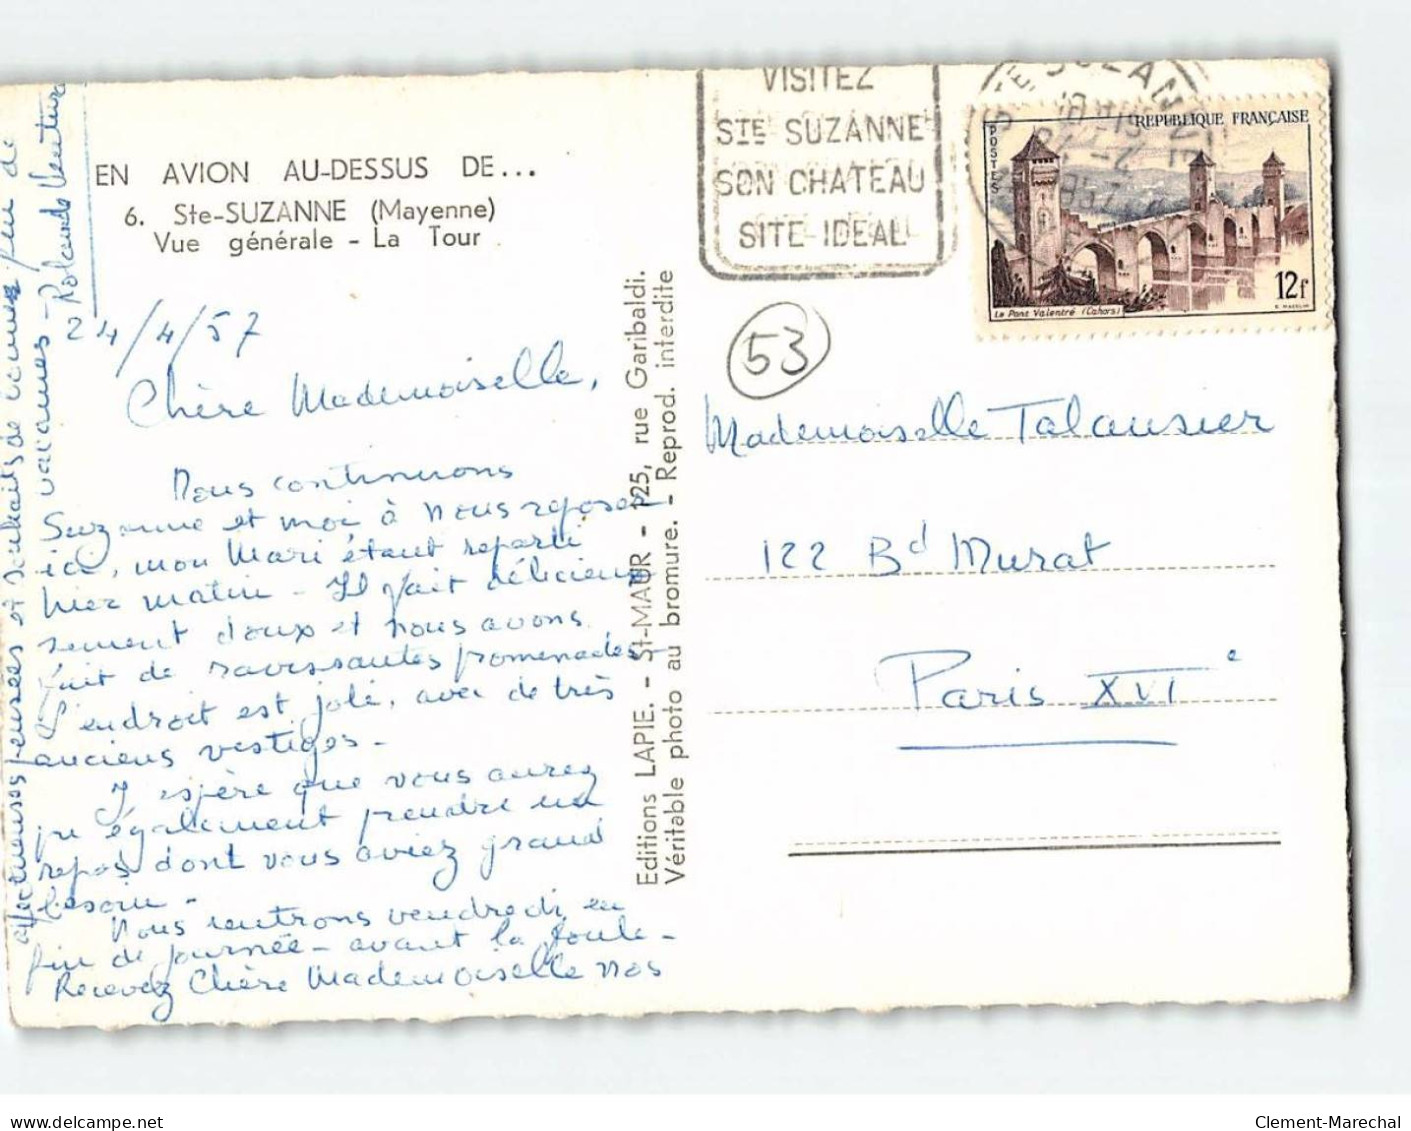 EN AVION AU-DESSUS DE...
6. Ste-SUZANNE (Mayenne)
Vue générale - La Tour
24/4/57
Chère Mademoiselle,
Nous continuons
Suzanne et moi à nous reposer
ici, mon Mari étant reparti
hier matin - Il fait délicieu
sement doux et nous avons
fait de ravissantes promenades
L'endroit est joli, avec de très
anciens vestiges -
J'espère que vous aurez
pu également prendre un
repos dont vous aviez grand
besoin -
Nous rentrons vendredi en
fin de journée - avant la foule -
Recevez Chère Mademoiselle nos
affectueuses pensées et souhaits de bonnes fin de
vacances - Rolande
Editions LAPIE. - St-MAUR - 125, rue Garibaldi.
Véritable photo au bromure. - Reprod. interdite
VISITEZ
STE SUZANNE
SON CHATEAU
SITE IDEAL
STE SUZANNE
REPUBLIQUE FRANÇAISE
POSTES
12f
Le Pont Valentré (Cahors)
53
Mademoiselle Talausier
122 Bd Murat
Paris XVIe
Clement-Marechal